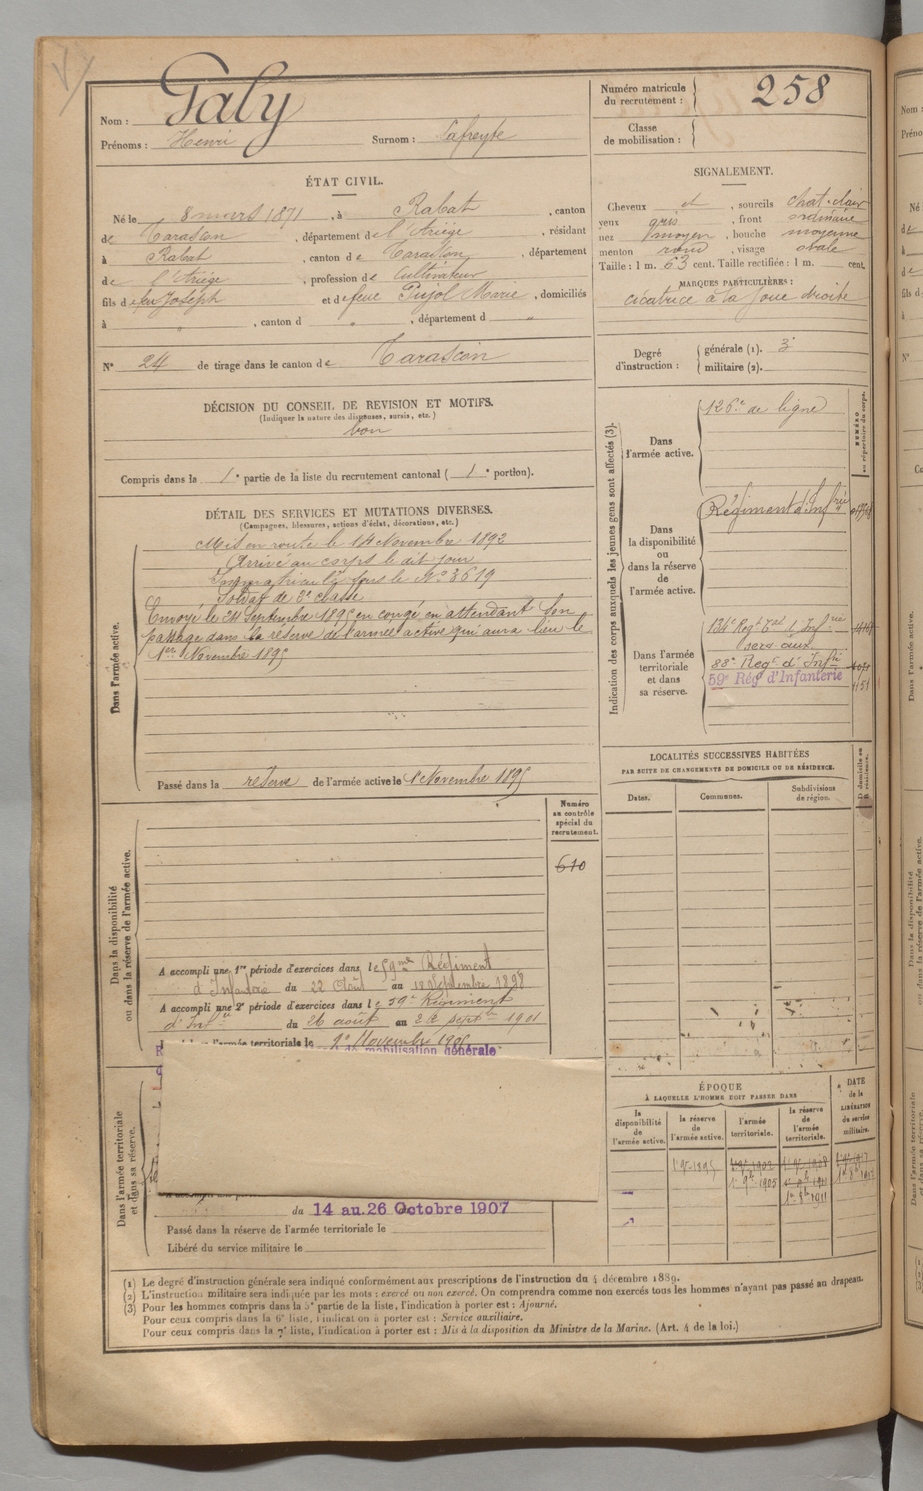 Nom : Galy
Prénoms : Henri Surnom : Lafreyte
Numéro matricule du recrutement : 258
Classe de mobilisation :
ÉTAT CIVIL.
Né le 8 mars 1871, à Rabat, canton
de Tarascon, département de l'Ariège, résidant
à Rabat, canton de Tarascon, département
de l'Ariège, profession de Cultivateur
fils de feu Joseph et de feue Pujol Marie, domiciliés
à " , canton d " , département d "
N° 24 de tirage dans le canton de Tarascon
SIGNALEMENT.
Cheveux et , sourcils chat. clair
yeux gris , front ordinaire
nez moyen , bouche moyenne
menton rond , visage ovale
Taille : 1 m. 63 cent. Taille rectifiée : 1 m. cent.
MARQUES PARTICULIÈRES :
cicatrice à la joue droite
Degré d'instruction : générale (1). 3
militaire (2).
DÉCISION DU CONSEIL DE REVISION ET MOTIFS.
(Indiquer la nature des dispenses, sursis, etc.)
bon
Compris dans la 1e partie de la liste du recrutement cantonal ( 1e portion).
DÉTAIL DES SERVICES ET MUTATIONS DIVERSES.
(Campagnes, blessures, actions d'éclat, décorations, etc.)
Dans l'armée active.
Mis en route le 14 Novembre 1892
Arrivé au corps le dit jour
Immatriculé sous le N° 3619
Soldat de 2e classe
Envoyé le 24 Septembre 1895 en congé en attendant son
passage dans la réserve de l'armée active qui aura lieu le
1er Novembre 1895
Passé dans la réserve de l'armée active le 1 Novembre 1895
Dans la disponibilité ou dans la réserve de l'armée active.
Numéro au contrôle spécial du recrutement.
610
A accompli une 1re période d'exercices dans le 59me Régiment
d'Infanterie du 22 Août au 18 Septembre 1898
A accompli une 2e période d'exercices dans le 59e Régiment
d'Infie du 26 août au 22 septbre 1901
l'armée territoriale le 1er Novembre 1905
de mobilisation générale
Dans l'armée territoriale et dans sa réserve.
du 14 au 26 Octobre 1907
Passé dans la réserve de l'armée territoriale le
Libéré du service militaire le
Indication des corps auxquels les jeunes gens sont affectés (3).
NUMÉRO au répertoire du corps.
Dans l'armée active. 126e de ligne
Dans la disponibilité ou dans la réserve de l'armée active. Régiment d'Infrie
Dans l'armée territoriale et dans sa réserve. 134e Regt Tal d'Infrie
serv. aux.
88e Regt d'Infie
59e Rég d'Infanterie
LOCALITÉS SUCCESSIVES HABITÉES
PAR SUITE DE CHANGEMENTS DE DOMICILE OU DE RÉSIDENCE.
Dates. Communes. Subdivisions de région. D domicile ou R résidence.
ÉPOQUE
À LAQUELLE L'HOMME DOIT PASSER DANS
DATE de la LIBÉRATION du service militaire.
la disponibilité de l'armée active. la réserve de l'armée active. l'armée territoriale. la réserve de l'armée territoriale.
(1) Le degré d'instruction générale sera indiqué conformément aux prescriptions de l'instruction du 4 décembre 1889.
(2) L'instruction militaire sera indiquée par les mots : exercé ou non exercé. On comprendra comme non exercés tous les hommes n'ayant pas passé au drapeau.
(3) Pour les hommes compris dans la 5e partie de la liste, l'indication à porter est : Ajourné.
Pour ceux compris dans la 6e liste, l'indication à porter est : Service auxiliaire.
Pour ceux compris dans la 7e liste, l'indication à porter est : Mis à la disposition du Ministre de la Marine. (Art. 4 de la loi.)